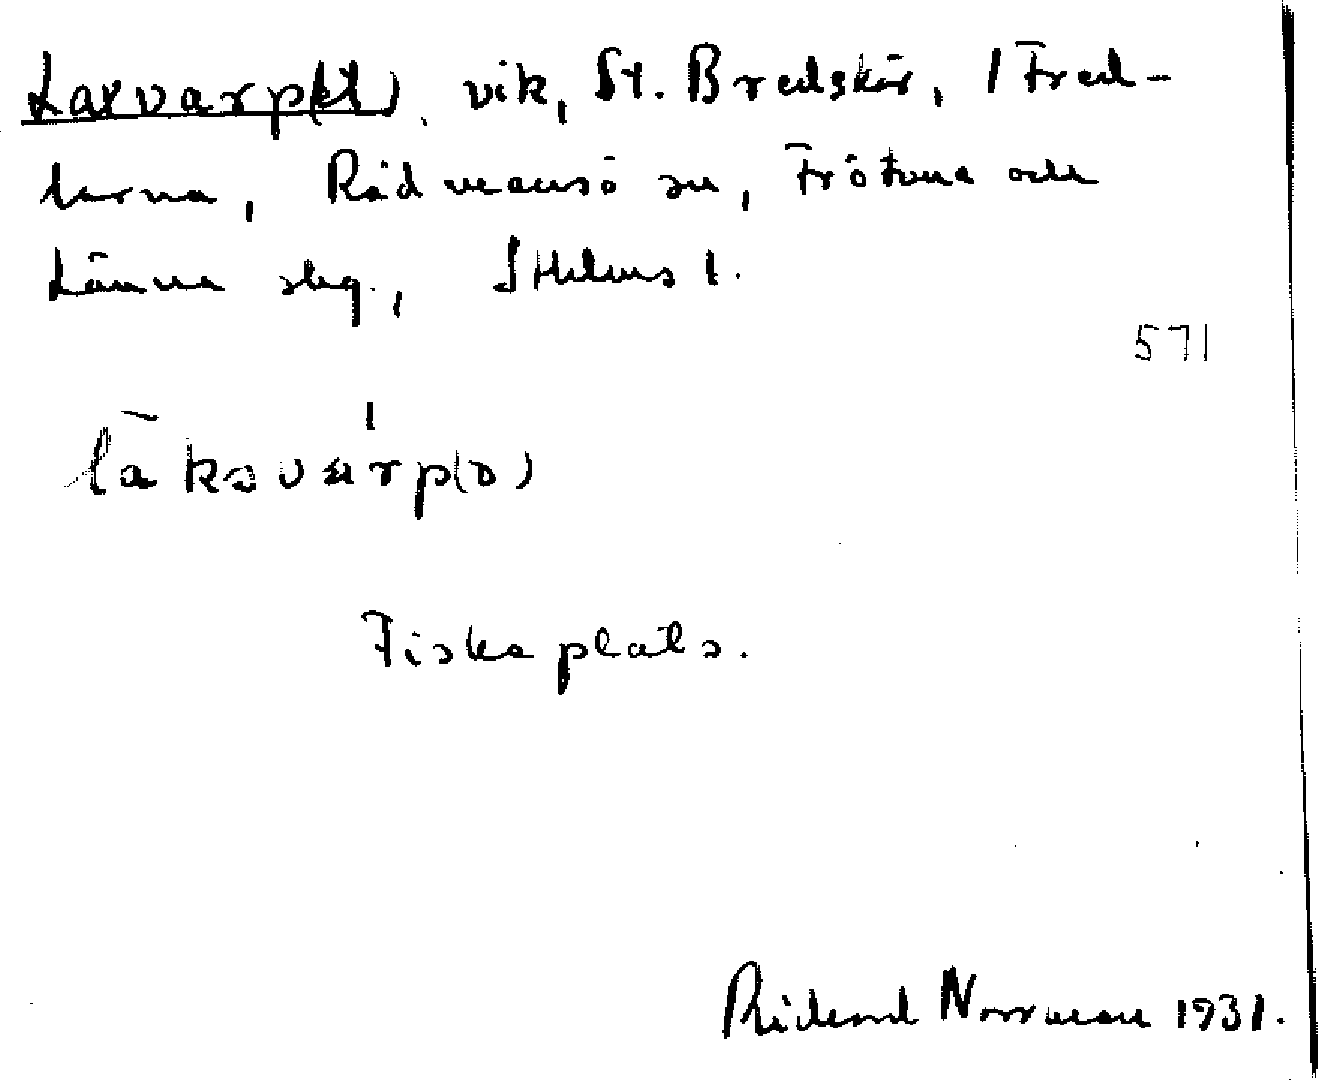 Laxvarp(et), vik, St. Bredskär, i Fred-
larna, Rådmansö sn, Frötuna och
Länna slg., Sthlms l.
571
laksvarp(ə)
Fiskeplats.
Rickard Norrman 1931.